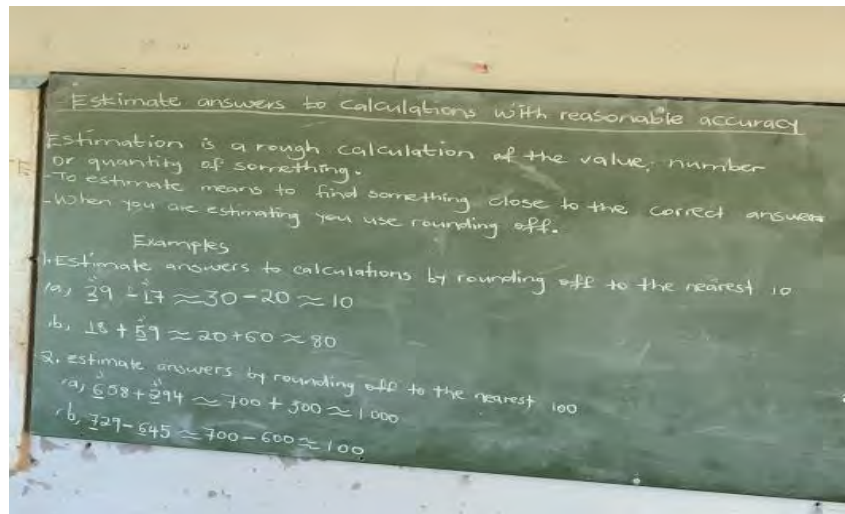 Estimate answers to calculations with reasonable accuracy
Estimation is a rough calculation of the value, number
or quantity of something.
-To estimate means to find something close to the correct answer
-When you are estimating you use rounding off.
Examples
1. Estimate answers to calculations by rounding off to the nearest 10
(a) 29 - 17 ≈ 30 - 20 ≈ 10
b, 18 + 59 ≈ 20 + 60 ≈ 80
2. estimate answers by rounding off to the nearest 100
(a) 658 + 294 ≈ 700 + 300 ≈ 1000
b, 729 - 645 ≈ 700 - 600 ≈ 100